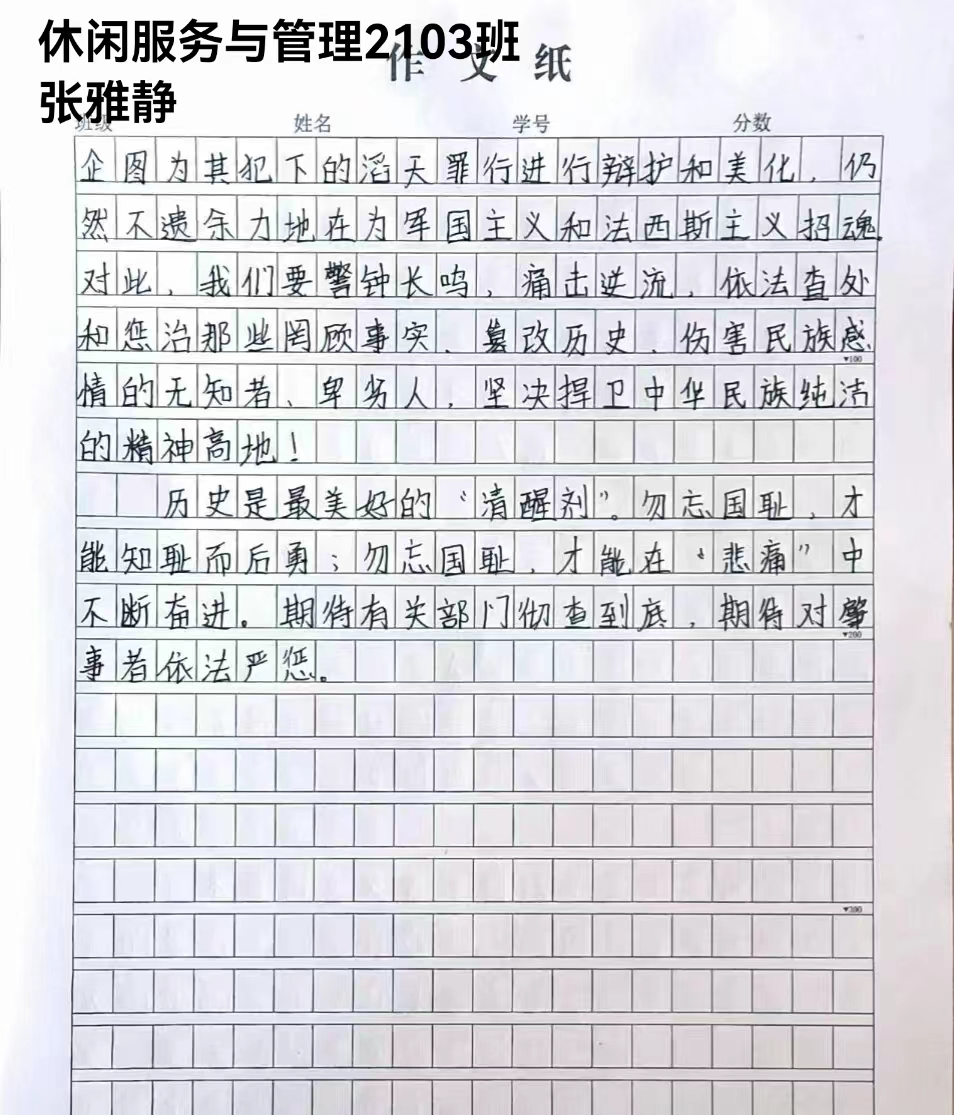 休闲服务与管理2103班
作 文 纸
张雅静
班级 姓名 学号 分数
企图为其犯下的滔天罪行进行辩护和美化，仍
然不遗余力地在为军国主义和法西斯主义招魂。
对此，我们要警钟长鸣，痛击逆流，依法查处
和惩治那些罔顾事实、篡改历史、伤害民族感
▼100
情的无知者、卑劣人，坚决捍卫中华民族纯洁
的精神高地！
历史是最美好的“清醒剂”。勿忘国耻，才
能知耻而后勇；勿忘国耻，才能在“悲痛”中
不断奋进。期待有关部门彻查到底，期待对肇
▼200
事者依法严惩。
▼300